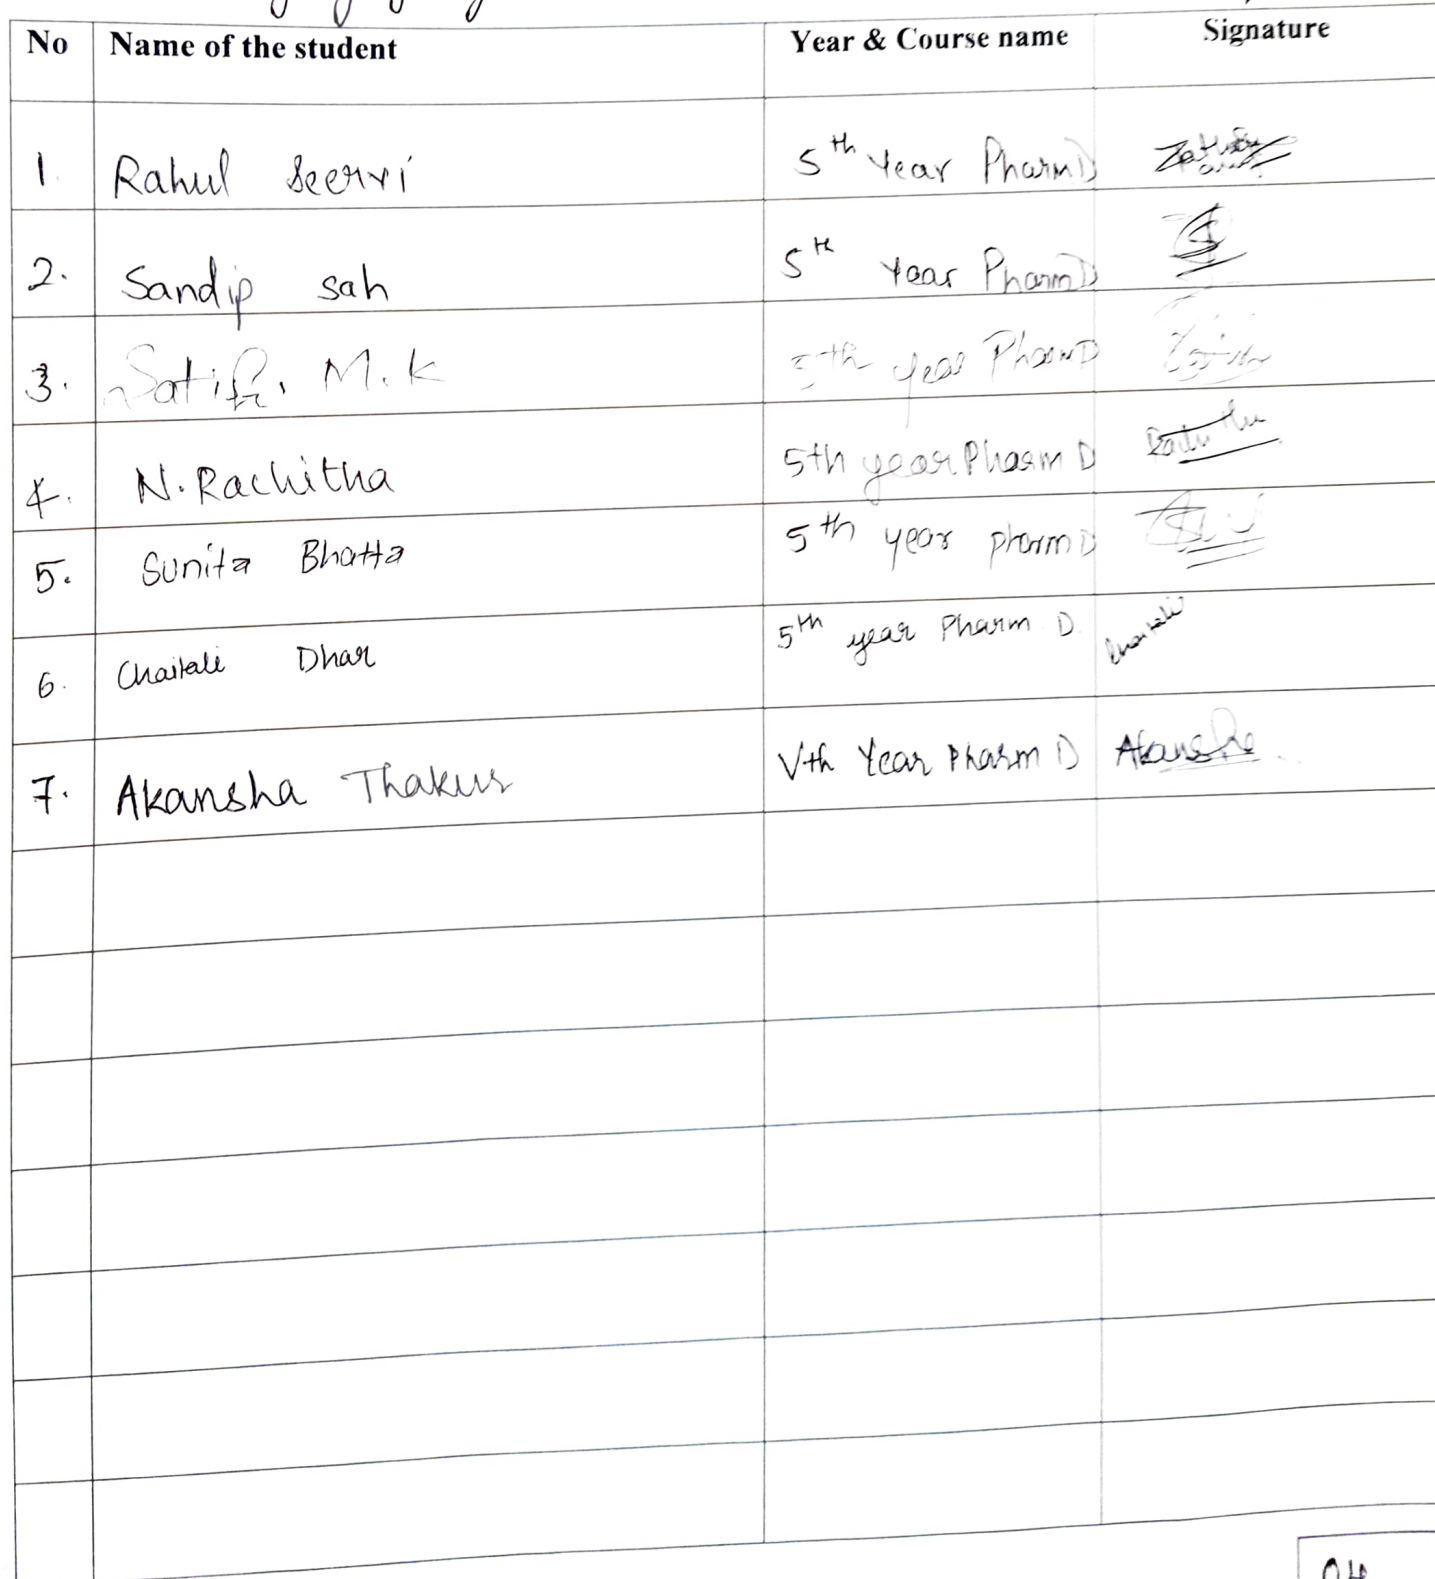 No Name of the student Year & Course name Signature
1. Rahul Seervi 5th Year Pharm D
2. Sandip sah 5th Year Pharm D
3. Satish. M.K 5th year Pharm D
4. N. Rachitha 5th year Pharm D
5. Sunita Bhatta 5th year pharm D
6. Chaitali Dhar 5th year Pharm D. Chaitali
7. Akansha Thakur Vth Year Pharm D Akansha
04